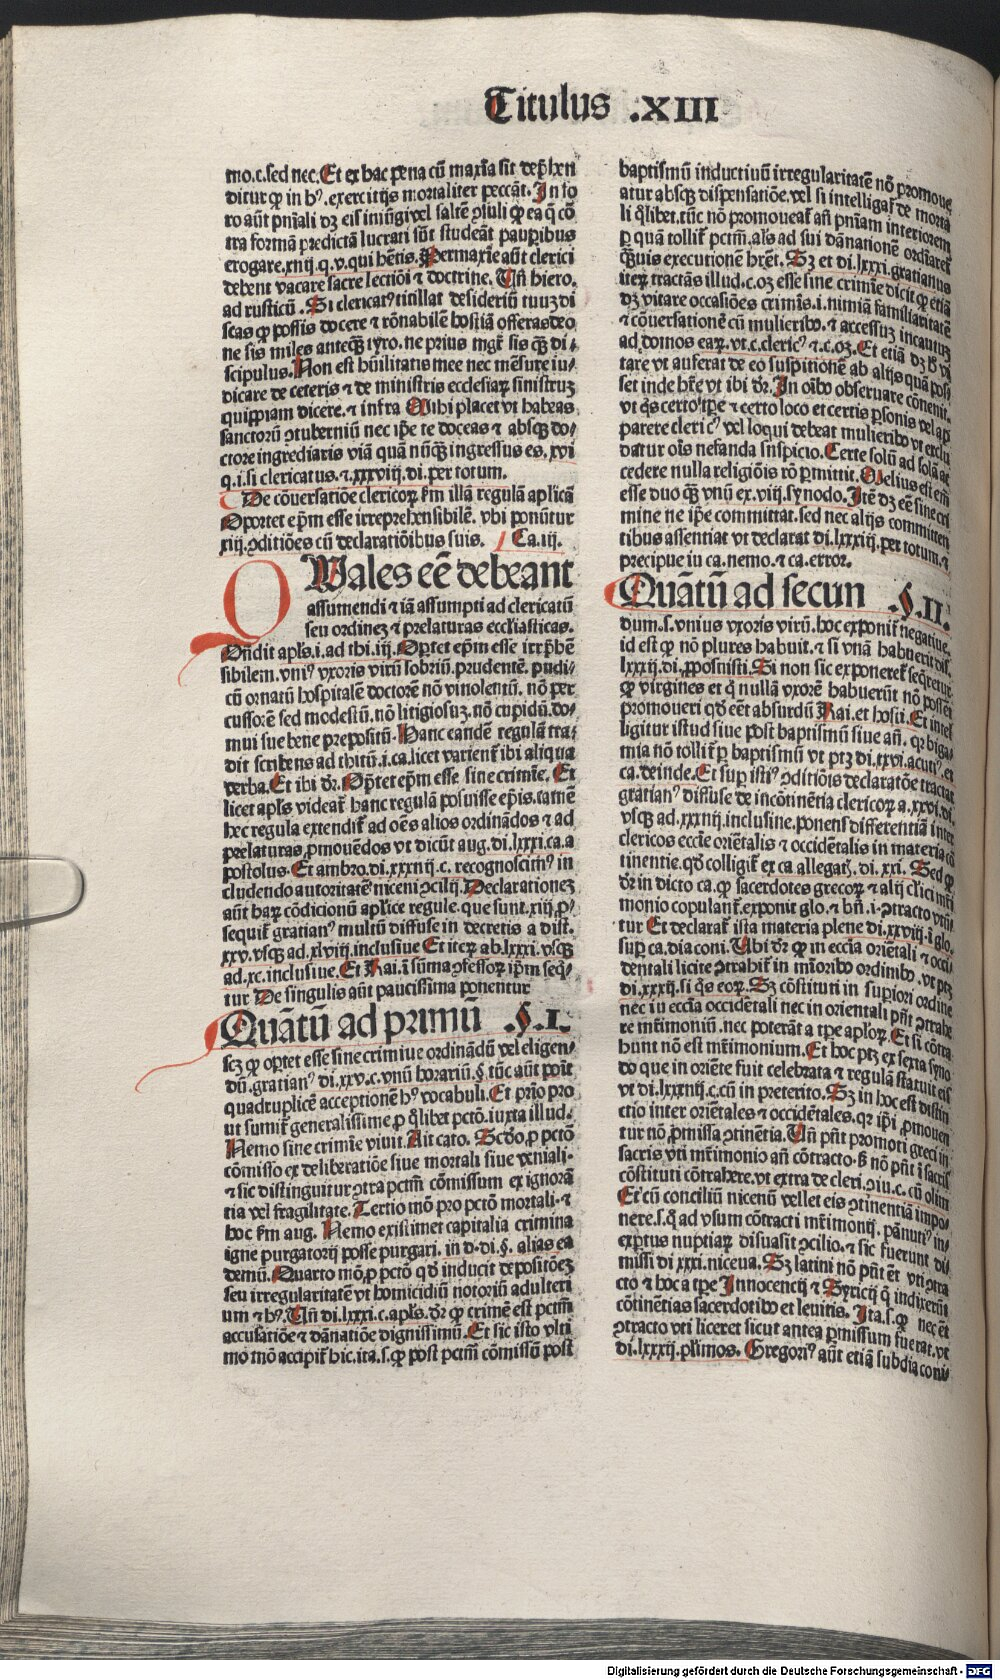 Titulus .XIII
mo.c.sed nec. Et ex hac pena cũ maxĩa sit dep̃hen
ditur ꝙ in hꝰ.exercitijs mortaliter peccãt. In fo
ro aũt pnĩali dꝫ eis iniũgi vel saltẽ ꝯsuli ꝙ ea q̃ cõ
tra formã predictã lucrati sũt studeãt pauꝑibus
erogare.xiiij.q.v.qui hẽtis. Permaxĩe aũt clerici
debent vacare sacre lectiõi ⁊ doctrine. Uñ hiero.
ad rusticũ. Si clericatꝰ titillat desideriũ tuuꝫ di
scas ꝙ possis docere ⁊ rõnabilẽ hostiã offeras deo
ne sis miles anteq̃ꝫ tyro. ne prius mgr̃ sis q̃ꝫ di-
scipulus. Non est hũilitatis mee nec mẽsure iu-
dicare de ceteris ⁊ de ministris ecclesiaꝝ sinistruꝫ
quippiam dicere. ⁊ infra Mihi placet vt habeas
sanctorũ ꝯtuberniũ nec ip̃e te doceas ⁊ absqꝫ do-
ctore ingrediaris viã quã nũq̃ꝫ ingressus es. xvi
q.i.si clericatus. ⁊.xxxviij.di.per totum.
De cõuersatiõe clericoꝝ ẜm illã regulã aplicã
Oportet ep̃m esse irreprehensibilẽ. vbi ponũtur
xiij.ꝯditiões cũ declaratiõibus suis. Ca.iij.
QUales eẽ debeant
assumendi ⁊ iã assumpti ad clericatũ
seu ordineꝫ ⁊ prelaturas eccl̃iasticas.
Oñdit apl̃s.i.ad thi.iij. Oꝑtet ep̃m esse irrep̃hẽ
sibilem. vniꝰ vxoris virũ sobriũ. prudentẽ. pudi-
cũ ornatũ hospitalẽ doctorẽ nõ vinolentũ. nõ per
cussorẽ sed modestũ. nõ litigiosuꝫ. nõ cupidũ. do-
mui sue bene prepositũ. Hanc eandẽ regulã tra-
dit scribens ad thitũ.i.ca.licet varient̃ ibi aliqua
verba. Et ibi dr̃. Oꝑtet ep̃m esse sine crimĩe. Et
licet apl̃s videat̃ hanc regulã posuisse ep̃is. tamẽ
hec regula extendit̃ ad oẽs alios ordinãdos ⁊ ad
prelaturas ꝓmouẽdos vt dicũt aug.di.lxxxi.ca.a
postolus. Et ambro.di.xxxiiij.c.recognoscim̃ꝰ in
cludendo autoritatẽ niceni ꝯcilij. Declarationeꝫ
aũt haꝝ cõdicionũ aplice regule. que sunt. xiij.ꝓ-
sequit̃ gratianꝰ multũ diffuse in decretis a dist.
xxv.vsqꝫ ad.xlviij.inclusiue Et iteꝝ ab.lxxxi.vsqꝫ
ad.xc.inclusiue. Et Rai.ĩ sũma ꝯfessoꝝ ip̃m seq̃-
tur De singulis aũt paucissima ponentur
Quãtũ ad primũ .§.I.
scꝫ ꝙ oꝑtet esse sine crimine ordinãdũ vel eligen-
dũ. gratianꝰ di.xxv.c.vnũ horariũ.§.tũc aũt poĩt
quadruplicẽ acceptionẽ hꝰ vocabuli. Et prĩo pro
ut sumit̃ generalissime ꝑ q̃libet pctõ. iuxta illud.
Nemo sine crimĩe viuit. Ait cato. Scd̃o ꝓ pctõ
cõmisso ex deliberatiõe siue mortali siue veniali-
⁊ sic distinguitur ꝯtra pctm̃ cõmissum ex ignorã
tia vel fragilitate. Tertio mõ pro pctõ mortali. ⁊
hoc ẜm aug. Nemo existimet capitalia crimina
igne purgatorij posse purgari. in d.di.§.alias ea
demũ. Quarto mõ ꝓ pctõ qd̃ inducit depositõeꝫ
seu irregularitatẽ vt homicidiũ notoriũ adulteri
um ⁊ hꝰ. Uñ di.lxxxi.c.apl̃s.dr̃ ꝙ crimẽ est pctm̃
accusatiõe ⁊ dãnatiõe dignissimũ. Et sic isto vlti
mo mõ accipit̃ hic. ita.s.ꝙ post pctm̃ cõmissũ post
baptismũ inductiuũ irregularitatẽ nõ promoue
atur absqꝫ dispensatiõe. vel si intelligat̃ de morta
li q̃libet. tũc nõ promoueat̃ añ pnĩam interiorem
ꝑ quã tollit̃ pctm̃. al̃s ad sui dãnationẽ ordĩaret̃
q̃ꝫuis executionẽ hr̃et. Sꝫ et di.lxxxi.gratianus
iteꝝ tractãs illud.c.oꝫ esse sine crimĩe dicit ꝙ etiã
dꝫ vitare occasiões crimĩs.i.nimiã familiaritatẽ
⁊ cõuersationẽ cũ mulieribꝰ. ⁊ accessuꝫ incautuꝫ
ad domos eaꝝ. vt.c.clericꝰ ⁊.c.oꝫ. Et etiã dꝫ ꝟ vi
tare vt auferat de eo suspitionẽ ab alijs quã pos-
set inde hr̃e vt ibi dr̃. In oĩbꝰ obseruare cõuenit.
vt q̃s certo tp̃e ⁊ certo loco et certis ꝑsonis vel ap
parere clericꝰ vel loqui debeat mulieribꝰ vt exclu
datur oĩs nefanda suspicio. Certe solũ ad solã ac
cedere nulla religiõis rõ ꝑmittit. Melius est em̃
esse duo q̃ꝫ vnũ ex.viij.synodo. Itẽ dꝫ eẽ sine cri
mine ne ip̃e committat. sed nec alijs committen
tibus assentiat vt declarat di.lxxxiij.per totum. ⁊
precipue in ca.nemo. ⁊ ca.error.
Quãtũ ad secun .§.II.
dum.s.vnius vxoris virũ. hoc exponit̃ negatiue.
id est ꝙ nõ plures habuit. ⁊ si vnã habuerit dis.
lxxxij.di.ꝓposuisti. Si non sic exponeret̃ seq̃retur
ꝙ virgines et q̃ nullã vxorẽ habuerũt nõ possẽt
promoueri qd̃ eẽt absurdũ Rai. et hosti. Et intel
ligitur istud siue post baptismũ siue añ. qꝛ biga-
mia nõ tollit̃ ꝑ baptismũ vt ptꝫ di.xxvi.acutiꝰ. et
ca.deinde. Et suꝑ istiꝰ ꝯditiõis declaratõe tractat
gratianꝰ diffuse de incõtinẽtia clericoꝝ a.xxvi.di.
vsqꝫ ad.xxxiiij.inclusiue. ponens differentiã inter
clericos eccl̃ie oriẽtalis ⁊ occidẽtalis in materia cõ
tinentie. qd̃ colligit̃ ex ca allegat̃.di.xxi. Sed ꝙ
dr̃ in dicto ca. ꝙ sacerdotes grecoꝝ ⁊ alij cl̃ici mr̃i
monio copulant̃. exponit glo. ⁊ bñ.i.ꝯtracto vtũ
tur Et declarat̃ ista materia plene di.xxviij.ĩ glo.
suꝑ ca.diaconi. Ubi dr̃ ꝙ in eccl̃ia oriẽtali ⁊ occi-
dentali licite ꝯtrahit̃ in mĩoribꝰ ordinibꝰ. vt ptꝫ
di.xxxij.si q̃s eoꝝ. Sꝫ cõstituti in suꝑiori ordine
nec in eccl̃ia occidẽtali nec in orientali pñt ꝯtrahe
re mr̃imoniũ. nec poterãt a tꝑe apl̃oꝝ. Et si cõtra
hunt nõ est mr̃imonium. Et hoc ptꝫ ex sexta syno
do que in oriẽte fuit celebrata ⁊ regulã statuit eis
vt di.lxxxiiij.c.cũ in preterito. Sꝫ in hoc est distin
ctio inter oriẽtales ⁊ occidẽtales. qꝛ ip̃i ꝓmouen
tur nõ ꝓmissa ꝯtinẽtia. Uñ pñt promoti greci in
sacris vti mr̃imonio añ cõtracto. ꝟ nõ pñt ĩ sacris
cõstituti cõtrahere. vt extra de cleri.ꝯiu.c.cũ olim
Et cũ concilium nicenũ vellet eis ꝯtinentiã impo-
nere.s.q̃ ad vsum cõtracti mr̃imonij. panutiꝰ in-
exꝑtus nuptiaꝝ disuasit ꝯcilio. ⁊ sic fuerunt di
missi di xxxi.nicena. Sꝫ latini nõ pñt eñ vti ꝯtra
cto ⁊ hoc a tꝑe Innocencij ⁊ Syricij q̃ indixerũt
cõtinẽtias sacerdotibꝰ et leuitis. Ita.s.ꝙ nec eẽt
ꝯtracto vti liceret sicut antea ꝑmissum fuerat. vt
di.lxxxij.plurimos. Gregoriꝰ aũt etiã subdiaconi-
Digitalisierung gefördert durch die Deutsche Forschungsgemeinschaft - DFG